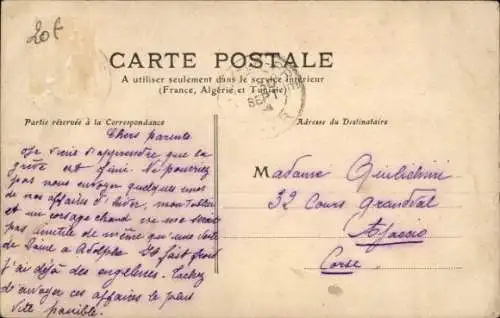 20f
CARTE POSTALE
A utiliser seulement dans le service intérieur
(France, Algérie et Tunisie)
Partie réservée à la Correspondance
Adresse du Destinataire
SEPT
Chers parents
Je viens d'apprendre que la
grève est fini. Ne pourriez
pas nous envoyer quelques unes
de nos affaires d'hiver, mon
et un corsage chaud ne me serait
pas inutile de même qu'une veste
de laine à Adolphe. Il fait froid
j'ai déjà des engelures. Tachez
d'envoyer ces affaires le plus
vite possible.
Madame Giubichini
32 Cours Grandval
Ajaccio
Corse